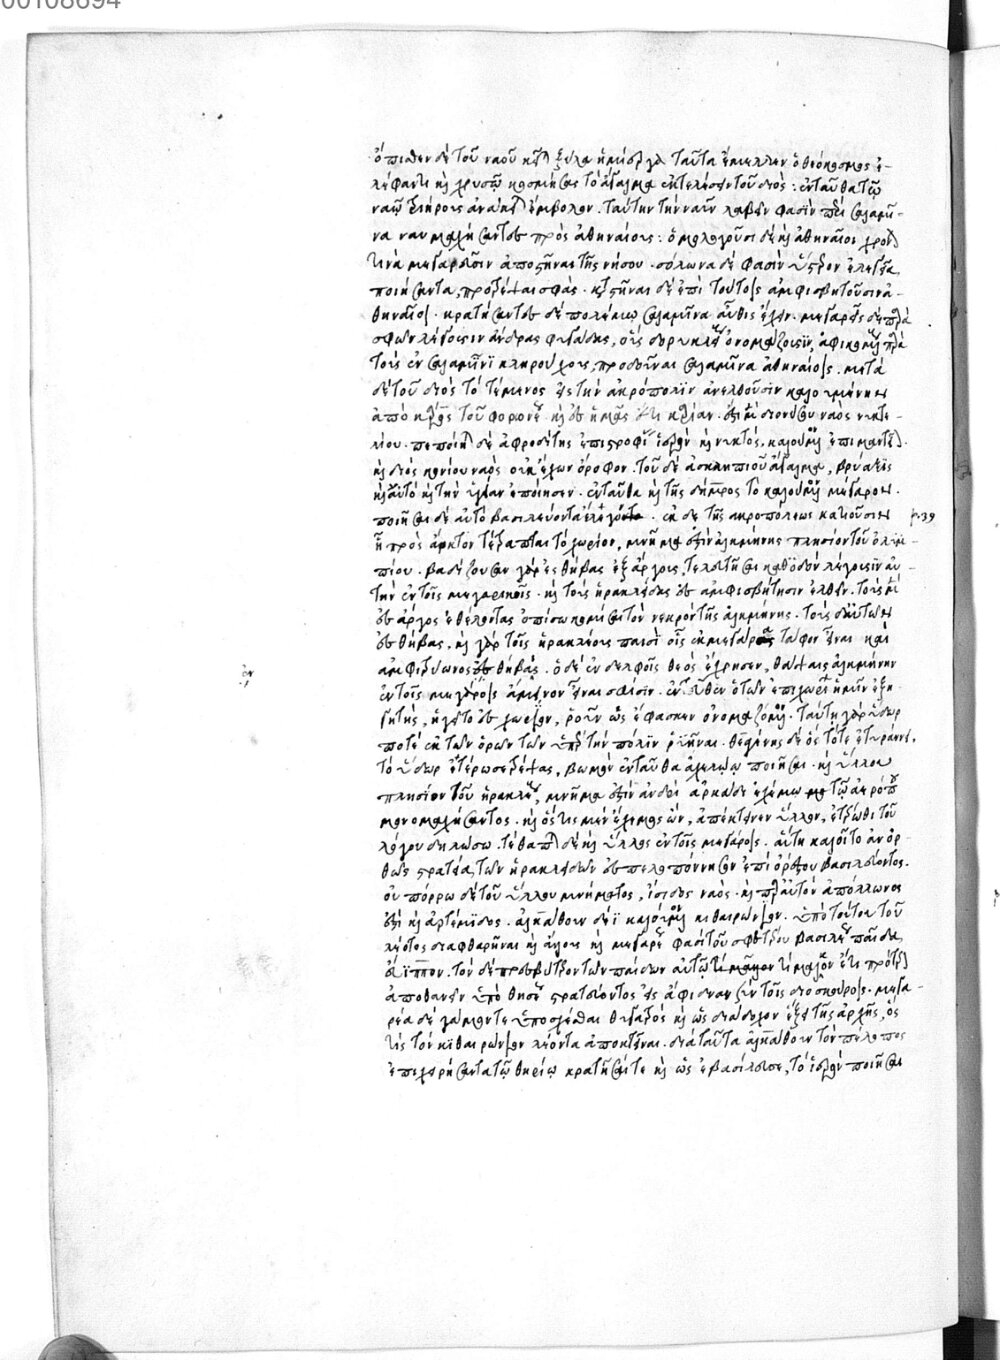 00108694
ὄπισθεν δὲ τοῦ ναοῦ κεῖται ξύλα ἡμίεργα ταῦτα ἔμελλεν ὁ θεόκοσμος ἐ-
λέφαντι καὶ χρυσῷ κοσμήσας τὸ ἄγαλμα ἐκτελέσειν τοῦ διός : ἐν ταῦθα τῷ
ναῷ τριήρους ἀνάκειται ἔμβολον. ταύτην τὴν ναῦν λαβεῖν φασὶν περὶ σαλαμῖ-
να ναυμαχήσαντες πρὸς ἀθηναίους : ὁμολογοῦσι δὲ καὶ ἀθηναῖοι χρόνον
τινὰ μεγαρεῦσιν ἀποστῆναι τῆς νήσου. σόλωνα δέ φασιν ὕστερον ἐλεγεῖα
ποιήσαντα, προτρέψαι σφάς. καταστῆναι δὲ ἐπὶ τούτοις ἀμφισβητοῦσιν ἀ-
θηναῖοι. κρατήσαντες δὲ πολέμῳ σαλαμῖνα αὖθις ἔχειν. μεγαρεῖς δὲ παρὰ
σφῶν λέγουσιν ἄνδρας φυγάδας, οὓς δορυκλείους ὀνομάζουσιν, ἀφικομένους παρὰ
τοὺς ἐν σαλαμῖνι κληρούχους, προδοῦναι σαλαμῖνα ἀθηναίοις. μετὰ
δὲ τοῦ διὸς τὸ τέμενος ἐς τὴν ἀκρόπολιν ἀνελθοῦσιν καλουμένην
ἀπὸ καρὸς τοῦ φορωνέως καὶ ἐς ἡμᾶς ἔτι καρίαν. ἔστι μὲν διονύσου ναὸς νυκτε-
λίου. πεποίηται δὲ ἀφροδίτης ἐπιστροφίας ἱερὸν καὶ νυκτός, καλούμενον ἐπι μαντεῖον.
καὶ διὸς κονίου ναὸς οὐκ ἔχων ὄροφον. τοῦ δὲ ἀσκληπιοῦ ἄγαλμα, βρύαξις
καὶ αὐτὸ καὶ τὴν ὑγείαν ἐποίησεν. ἐνταῦθα καὶ τῆς δήμητρος τὸ καλούμενον μέγαρον.
ποιῆσαι δὲ αὐτὸ βασιλεύοντα ἔλεγον. ἐκ δὲ τῆς ακροπόλεως κατιοῦσιν p. 39
ἣ πρὸς ἄρκτον τέτραπται τὸ χωρίον, μνῆμά ἐστιν ἀλκμήνης πλησίον τοῦ ὀλυμ-
πίου. βαδίζουσαν γὰρ ἐς θήβας ἐξ ἄργους, τελευτῆσαι καθ ὁδὸν λέγουσιν αὐ-
τὴν ἐν τοῖς μεγάροις. καὶ τοὺς ἡρακλείδας ἐς ἀμφισβήτησιν ἐλθεῖν. τοὺς μὲν
ἐς ἄργος ἐθέλοντας ὀπίσω κομίσαι τὸν νεκρὸν τῆς ἀλκμήνης. τοὺς δὲ αὐτῶν
ἐς θήβας, καὶ γὰρ τοῖς ἡρακλέους παισὶ οἷς ἐκ μεγάρας ταφον εἶναι καὶ
αμφιτρύωνος ἐς θήβας. ὁ δὲ ἐν δελφοῖς θεὸς ἔχρησεν, θάψαις ἀλκμήνην
ἐν τοῖς μεγάροις ἄμεινον εἶναι σφίσιν. ἐντεῦθεν ὁ τῶν ἐπιχωρίων ἡμῖν ἐξη-
γητὴς, ἡγεῖτο ἐς χωρίον, ῥοῦν ὡς ἔφασκεν ὀνομαζόμενον. ταύτῃ γὰρ ὕδωρ
ποτὲ ἐκ τῶν ὀρῶν τῶν ὑπὲρ τὴν πόλιν ῥυῆναι. θεγένης δὲ ὃς τότε ἐτυράννει,
τὸ ὕδωρ ἑτέρωσε τρέψας, βωμὸν ἐνταῦθα ἀχελώῳ ποιῆσαι. καὶ ὕλλου
πλησίον τοῦ ἡρακλέους, μνῆμά ἐστιν ἀνδρὶ ἀρκάδι ἐχέμῳ τῷ ἀερόπου
μονομαχήσαντος. καὶ ὅστις μὲν ἔχεμος ὢν, ἀπέκτεινεν ὕλλον, ἑτέρωθι τοῦ
λόγου δηλώσω. τέθαπται δὲ καὶ ὕλλος ἐν τοῖς μεγάροις. αὕτη καλοῖτο ἂν ὀρ-
θῶς στρατεία, τῶν ἡρακλειδῶν ἐς πελοπόννησον ἐπὶ ὀρέστου βασιλεύοντος.
οὐ πόρρω δὲ τοῦ ὕλλου μνήματος, ἴσιδος ναὸς. καὶ παρ αὐτὸν ἀπόλλωνος
ἐστὶ καὶ ἀρτέμιδος. ἀλκάθουν δέϊ καλούμενον κιθαιρώνιον. ὑπὸ τούτου τοῦ
λέοντος διαφθαρῆναι καὶ ἄλλους καὶ μεγαρέως φασὶ τοῦ σφετέρου βασιλέως παῖδα
εὔιππον. τὸν δὲ πρεσβύτερον τῶν παίδων αὐτῷ τίμαλκον ἔτι πρότερον
ἀποθανεῖν ὑπὸ θησέως στρατεύοντος ἐς ἄφιδναν σὺν τοῖς διοσκούροις. μεγα-
ρέα δὲ γάμον τε ὑποσχέσθαι θυγατρὸς καὶ ὡς διάδοχον ἕξει τῆς ἀρχῆς, ὅς
τις τὸν κιθαιρώνιον λέοντα ἀποκτεῖναι. διὰ ταῦτα ἀλκάθουν τὸν πέλοπος
ἐπιχειρήσαντα τῷ θηρίῳ κρατῆσαί τε καὶ ὡς ἐβασίλευσε, τὸ ἱερὸν ποιῆσαι